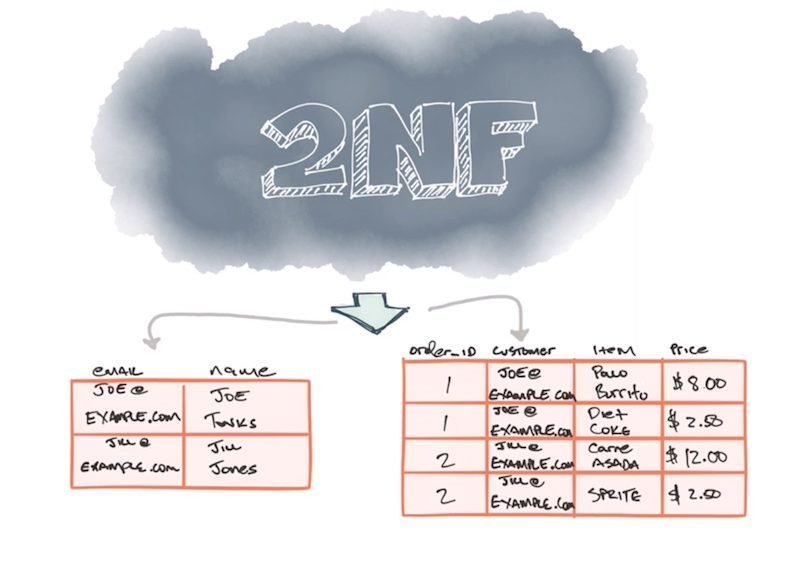 2NF
email name
JOE@ JOE
EXAMPLE.COM Tonks
JILL@ JILL
EXAMPLE.COM Jones
order_ID CUSTOMER ITEM PRICE
1 JOE@ EXAMPLE.COM Pollo Burrito $8.00
1 JOE@ EXAMPLE.COM Diet COKE $2.50
2 JILL@ EXAMPLE.COM Carne ASADA $12.00
2 JILL@ EXAMPLE.COM SPRITE $2.50